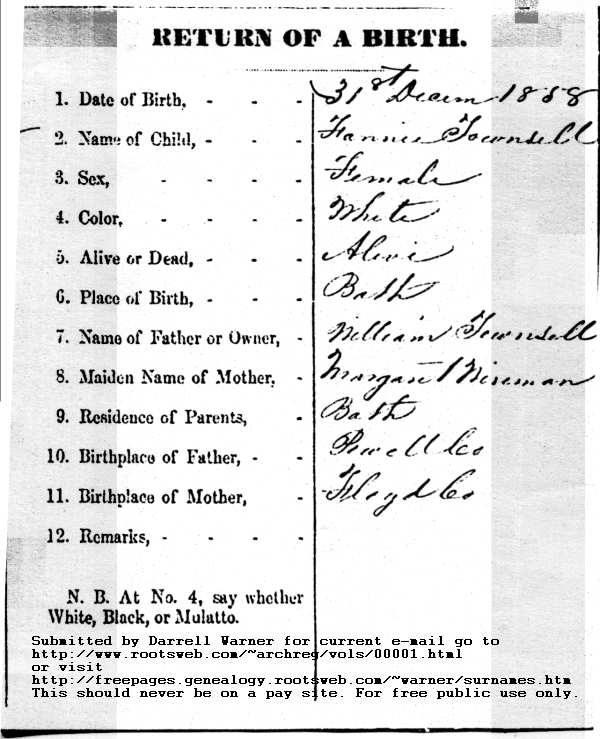 RETURN OF A BIRTH.
1. Date of Birth, - - - 31st Decem 1858
2. Name of Child, - - - Fannie Townsell
3. Sex, - - - - Female
4. Color, - - - - White
5. Alive or Dead, - - - Alive
6. Place of Birth, - - - Bath
7. Name of Father or Owner, - William Townsell
8. Maiden Name of Mother, - Margant Wireman
9. Residence of Parents, - Bath
10. Birthplace of Father, - - Powell Co
11. Birthplace of Mother, - Floyd Co
12. Remarks, - - - -
N. B. At No. 4, say whether
White, Black, or Mulatto.
Submitted by Darrell Warner for current e-mail go to
http://www.rootsweb.com/~archreg/vols/00001.html
or visit
http://freepages.genealogy.rootsweb.com/~warner/surnames.htm
This should never be on a pay site. For free public use only.